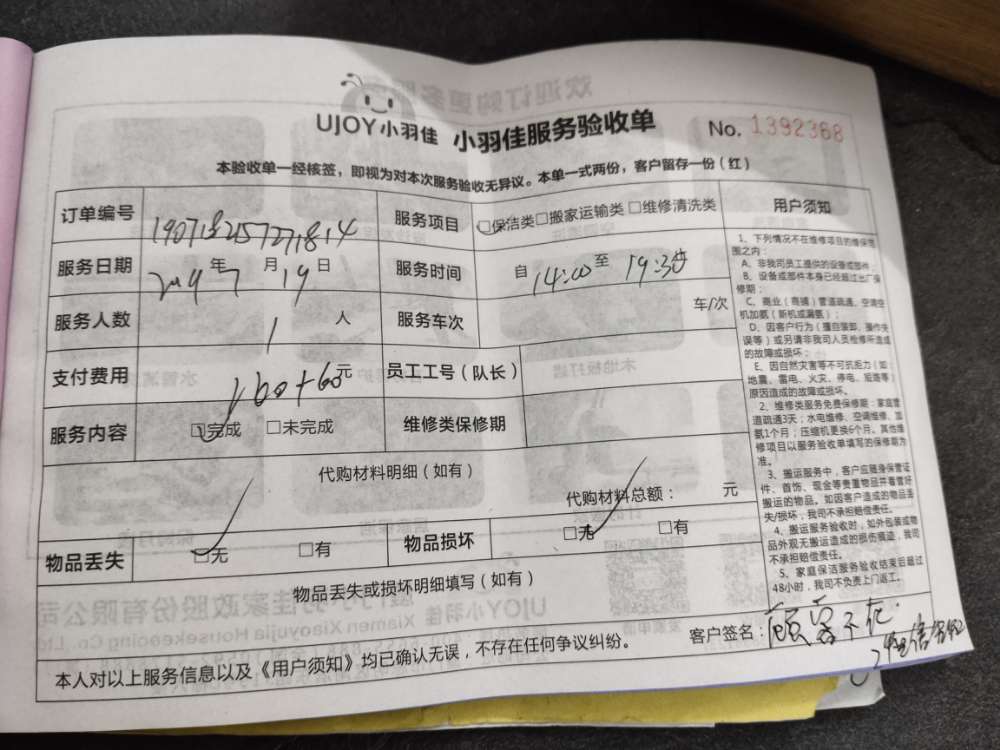 UJOY小羽佳 小羽佳服务验收单 No. 1392368
本验收单一经核签，即视为对本次服务验收无异议。本单一式两份，客户留存一份（红）
订单编号 服务项目 □保洁类□搬家运输类□维修清洗类
服务日期 2019年7月19日 服务时间 自14:00至19:30
服务人数 1人 服务车次 车/次
支付费用 160+60元 员工工号（队长）
服务内容 □完成 □未完成 维修类保修期
代购材料明细（如有）
代购材料总额： 元
物品丢失 □无 □有 物品损坏 □无 □有
物品丢失或损坏明细填写（如有）
本人对以上服务信息以及《用户须知》均已确认无误，不存在任何争议纠纷。
客户签名：顾客不在
用户须知
1、下列情况不在维修项目的维保范
围之内：
A、非我司员工提供的设备或部件；
B、设备或部件本身已经超过出厂保
修期；
C、商业（商铺）管道疏通、空调空
机加氨（新机或漏氨）；
D、因客户行为（擅自装卸、操作失
误等）或另请非我司人员检修所造成
的故障或损坏；
E、因自然灾害等不可抗拒力（如：
地震、雷电、火灾、停电、短路等）
原因造成的故障或损坏。
2、维修类服务免费保修期：家庭管
道疏通3天；水电维修、空调维修、加
氨1个月；压缩机更换6个月。其他维
修项目以服务验收单填写的保修期为
准。
3、搬运服务中，客户应随身保管证
件、首饰、现金等贵重物品并看管好
搬运的物品。如因客户造成的物品丢
失/损坏，我司不承担赔偿责任。
4、搬运服务验收时，如外包装或物
品外观无搬运造成的损伤痕迹，我司
不承担赔偿责任。
5、家庭保洁服务验收结束后超过
48小时，我司不负责上门返工。